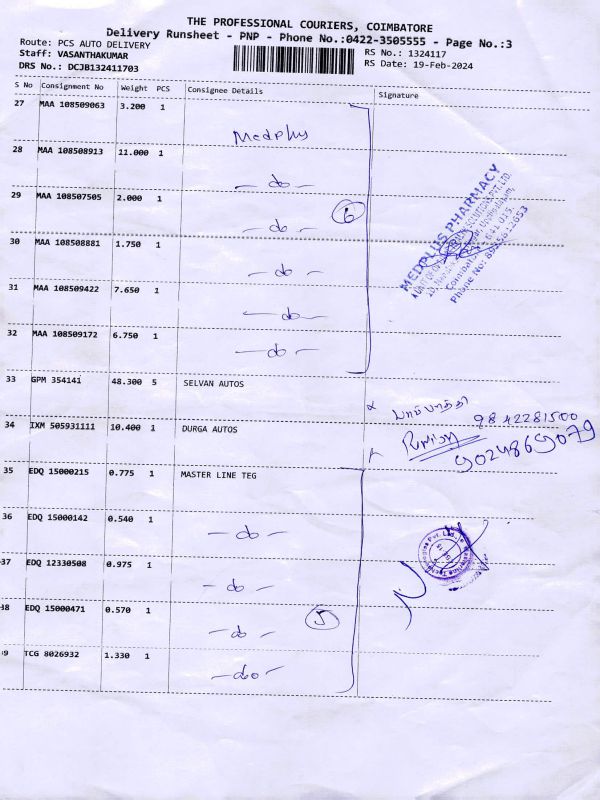 THE PROFESSIONAL COURIERS, COIMBATORE
Delivery Runsheet - PNP - Phone No.:0422-3505555 - Page No.:3
Route: PCS AUTO DELIVERY
RS No.: 1324117
Staff: VASANTHAKUMAR
RS Date: 19-Feb-2024
DRS No.: DCJB132411703
S No Consignment No Weight PCS Consignee Details Signature
27 MAA 108509063 3.200 1 Medplus
28 MAA 108508913 11.000 1 — do —
29 MAA 108507505 2.000 1 — do —
6
30 MAA 108508881 1.750 1 — do —
31 MAA 108509422 7.650 1 — do —
32 MAA 108509172 6.750 1 — do —
MEDPLUS PHARMACY
Phone No:
33 GPM 354141 48.300 5 SELVAN AUTOS
9842281500
34 IXM 505931111 10.400 1 DURGA AUTOS
9024869079
35 EDQ 15000215 0.775 1 MASTER LINE TEG
36 EDQ 15000142 0.540 1 — do —
37 EDQ 12330508 0.975 1 — do —
38 EDQ 15000471 0.570 1 — do —
5
39 TCG 8026932 1.330 1 — do —